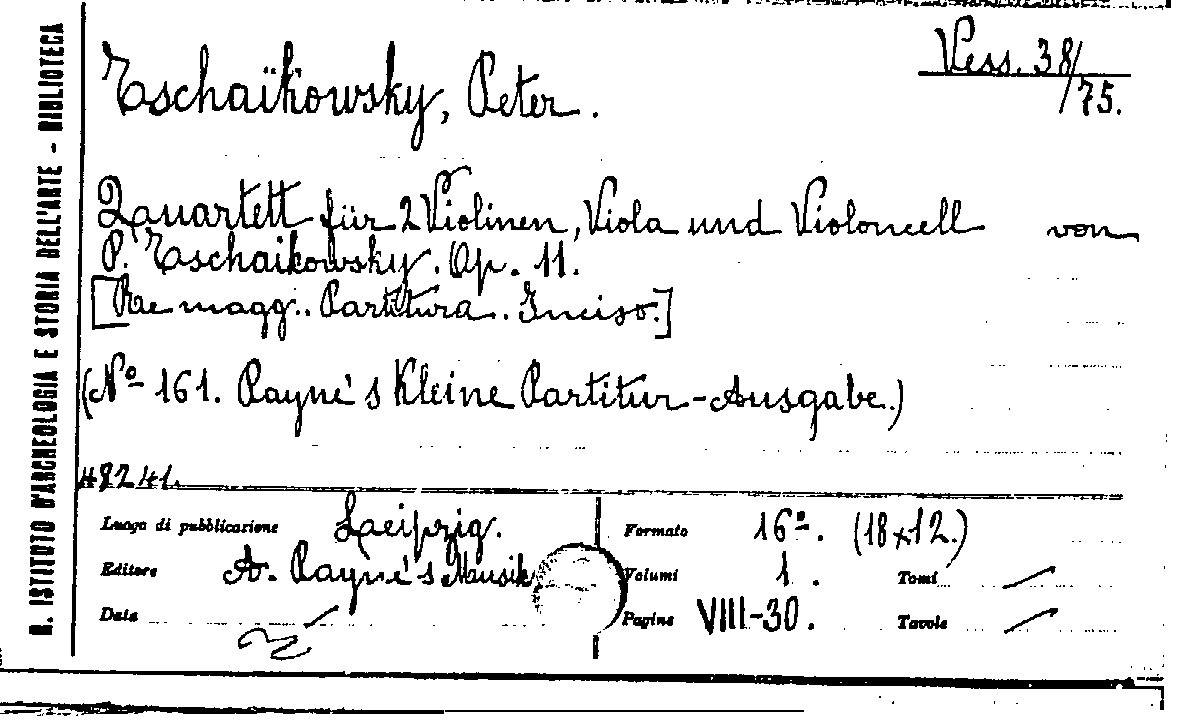 R. ISTITUTO D'ARCHEOLOGIA E STORIA DELL'ARTE - BIBLIOTECA
Vess. 38/
/75.
Tschaïkowsky, Peter.
Quartett für 2 Violinen, Viola und Violoncell von
P. Tschaikowsky. Op. 11.
[Re magg.. Partitura. Inciso.]
(Nº 161. Payne's Kleine Partitur-Ausgabe.)
48241.
Luogo di pubblicazione Leipzig. Formato 16º. (18x12.)
Editore A. Payne's Musik Volumi 1. Tomi /
Data / Pagine VIII-30. Tavole /